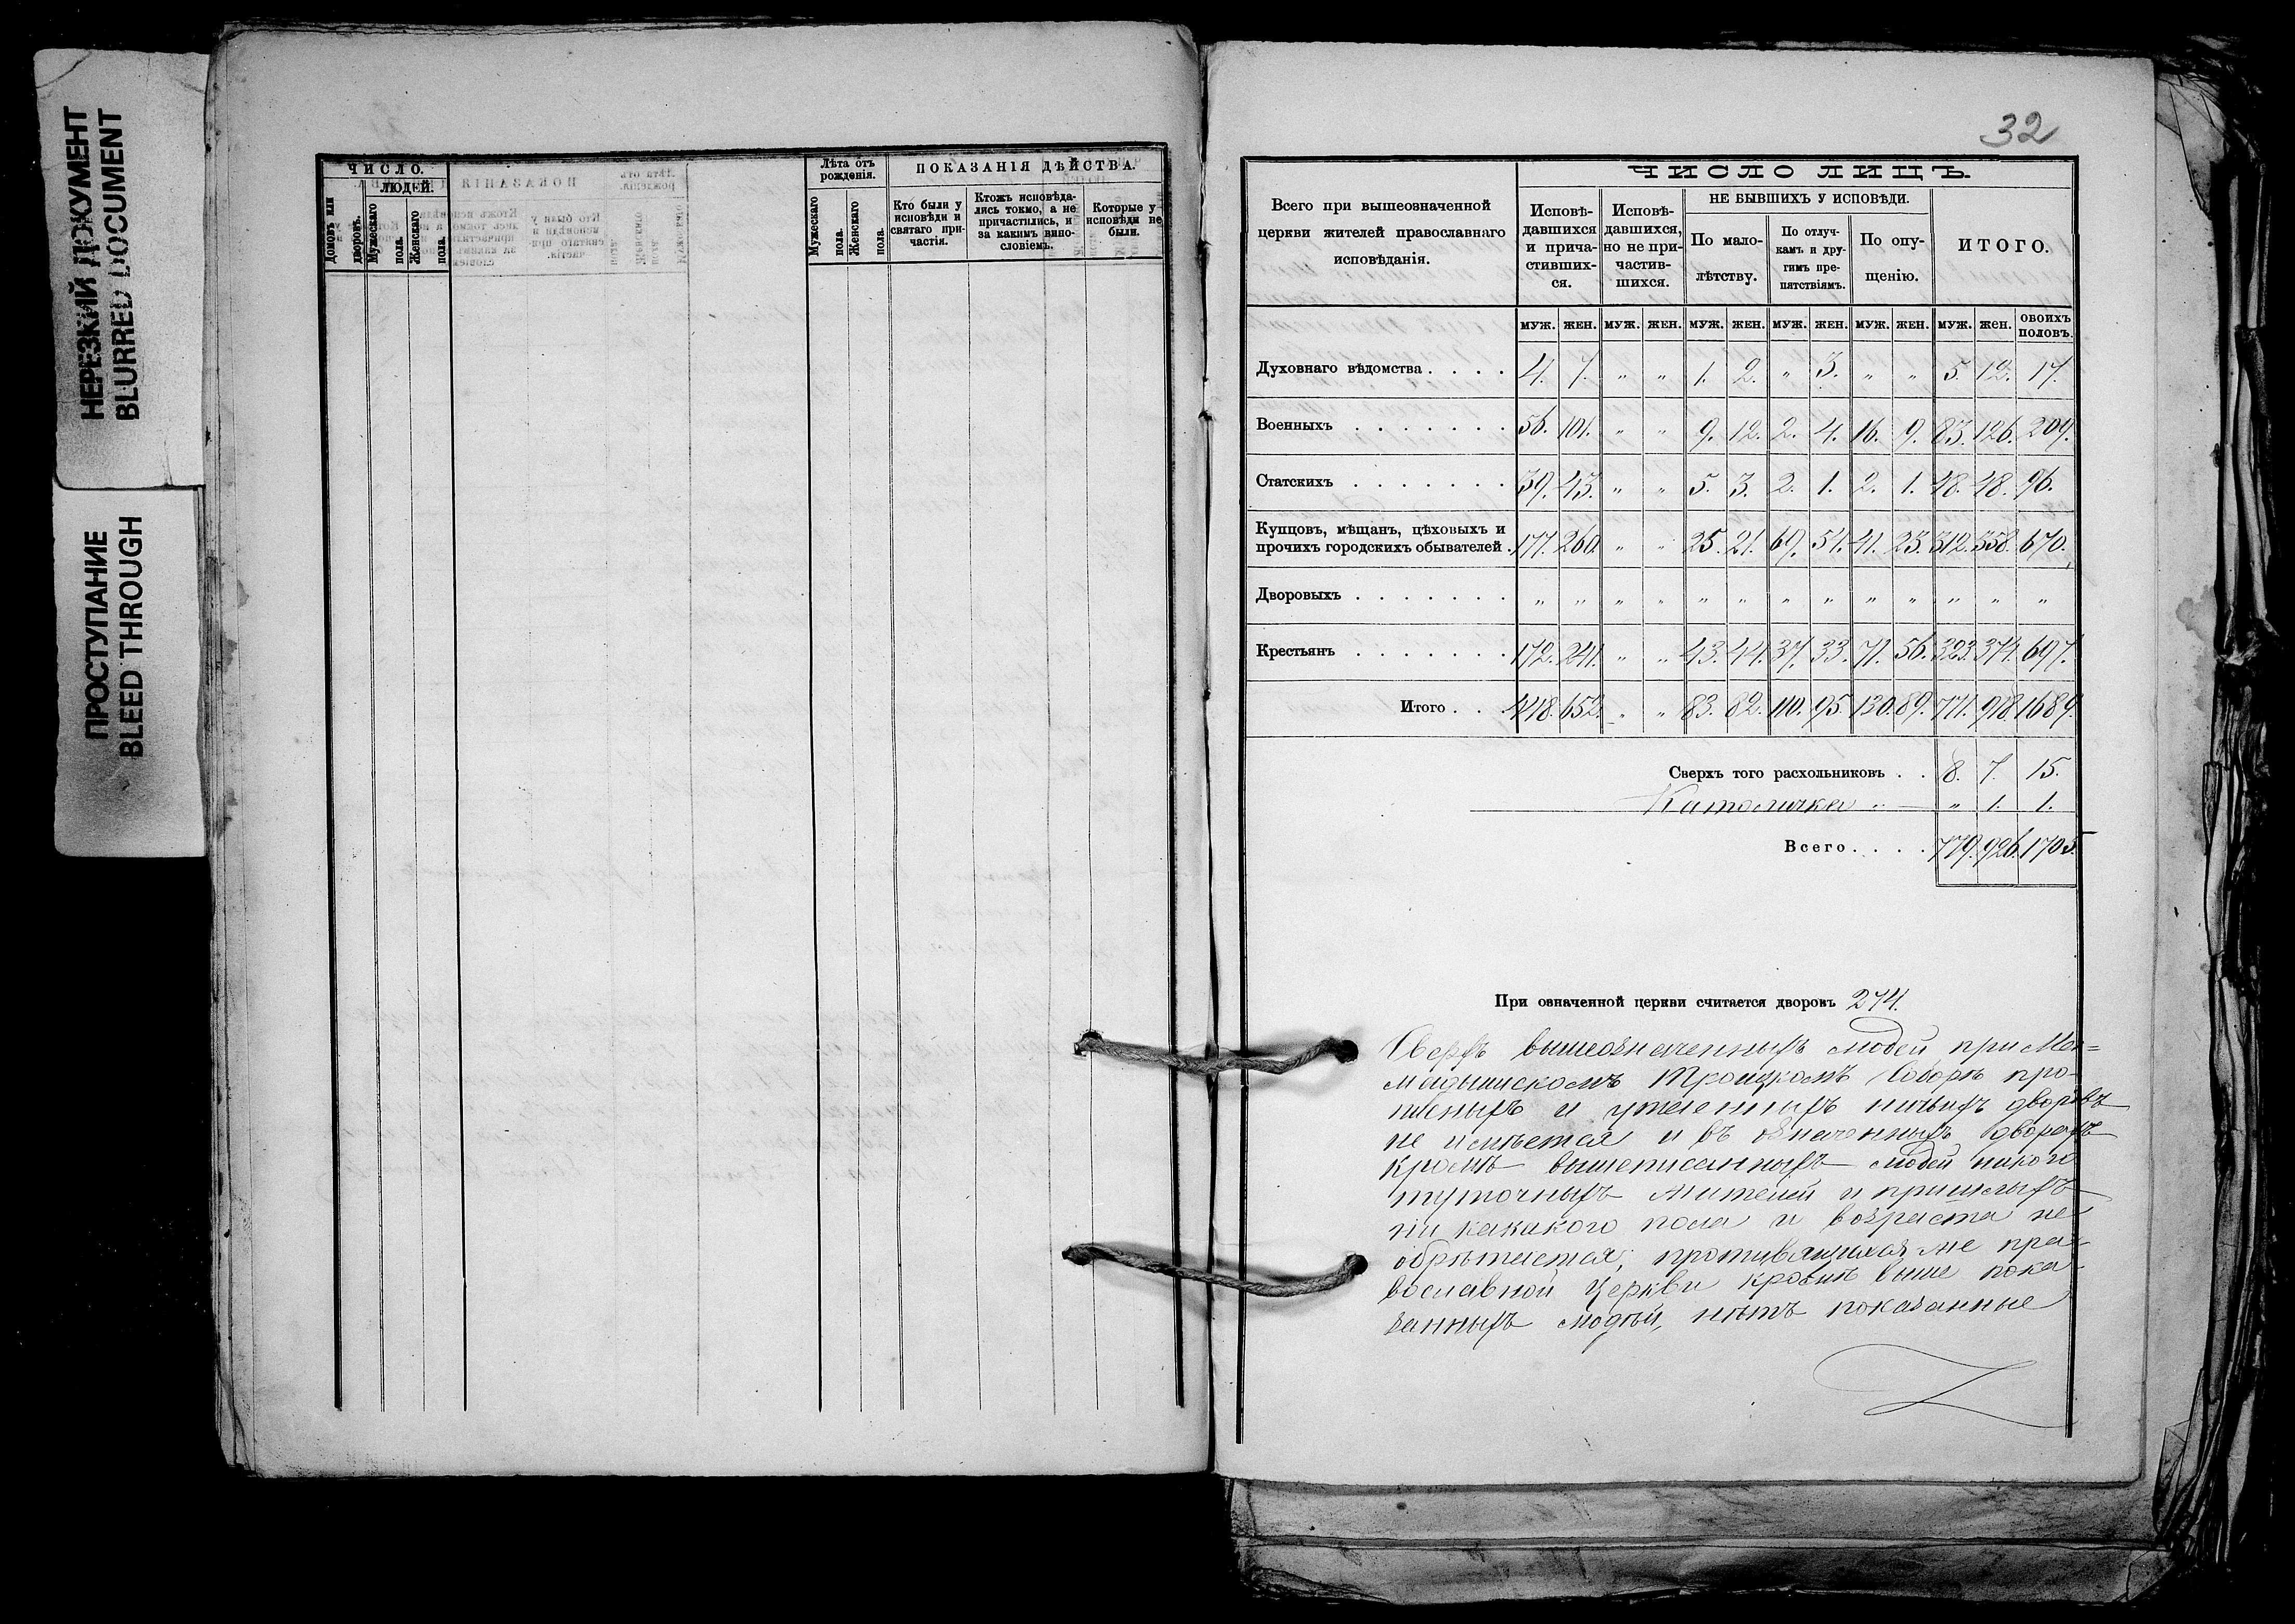 НЕРЕЗКИЙ ДОКУМЕНТ
BLURRED DOCUMENT
ПРОСТУПАНИЕ
BLEED THROUGH
ЧИСЛО.
ЛЮДЕЙ.
Домовъ или дворовъ.
Мужескаго пола.
Женскаго пола.
Лѣта отъ рожденія.
Мужескаго пола.
Женскаго пола.
ПОКАЗАНІЯ ДѢЙСТВА.
Кто были у исповѣди и святаго причастія.
Ктожъ исповѣдались токмо, а не причастились, и за какимъ винословіемъ.
Которые у исповѣди не были.
32
ЧИСЛО ЛИЦЪ.
Всего при вышеозначенной
церкви жителей православнаго
исповѣданія.
Исповѣдавшихся и причастившихся.
Исповѣдавшихся, но не причастившихся.
НЕ БЫВШИХЪ У ИСПОВѢДИ.
По малолѣтству.
По отлучкамъ и другимъ препятствіямъ.
По опущенію.
ИТОГО.
МУЖ. ЖЕН. МУЖ. ЖЕН. МУЖ. ЖЕН. МУЖ. ЖЕН. МУЖ. ЖЕН. МУЖ. ЖЕН. ОБОИХЪ ПОЛОВЪ.
Духовнаго вѣдомства . . . . 4. 7. " " 1. 2. " 3. " " 5. 12. 17.
Военныхъ . . . . . . . 56. 101. " " 9. 12. 2. 4. 16. 9. 83. 126. 209.
Статскихъ . . . . . . . 39. 43. " " 5. 3. 2. 1. 2. 1. 48. 48. 96.
Купцовъ, мѣщанъ, цѣховыхъ и
прочихъ городскихъ обывателей . 177. 260. " " 25. 21. 69. 51. 41. 23. 312. 358. 670.
Дворовыхъ . . . . . . . " " " " " " " " " " " " "
Крестьянъ . . . . . . . 172. 241. " " 43. 44. 37. 33. 71. 56. 323. 374. 697.
Итого . . . 448. 652. " " 83. 82. 110. 95. 130. 89. 771. 918. 1689.
Сверхъ того расхольниковъ . . 8. 7. 15.
Католичка " 1. 1.
Всего . . . . 779. 926. 1705.
При означенной церкви считается дворовъ 274.
Сверхъ вышеозначенныхъ людей при Ма=
мадышскомъ Троицкомъ Соборѣ про-
писныхъ и утаенныхъ дворовъ
не имѣется и въ означенныхъ дворахъ
кромѣ вышеписанныхъ людей никого
туточныхъ жителей и пришлыхъ
ни какакого пола и возраста не
обрѣтается; противящихся же пра-
вославной Церкви кромѣ выше пока-
занныхъ людей, нѣтъ показанные